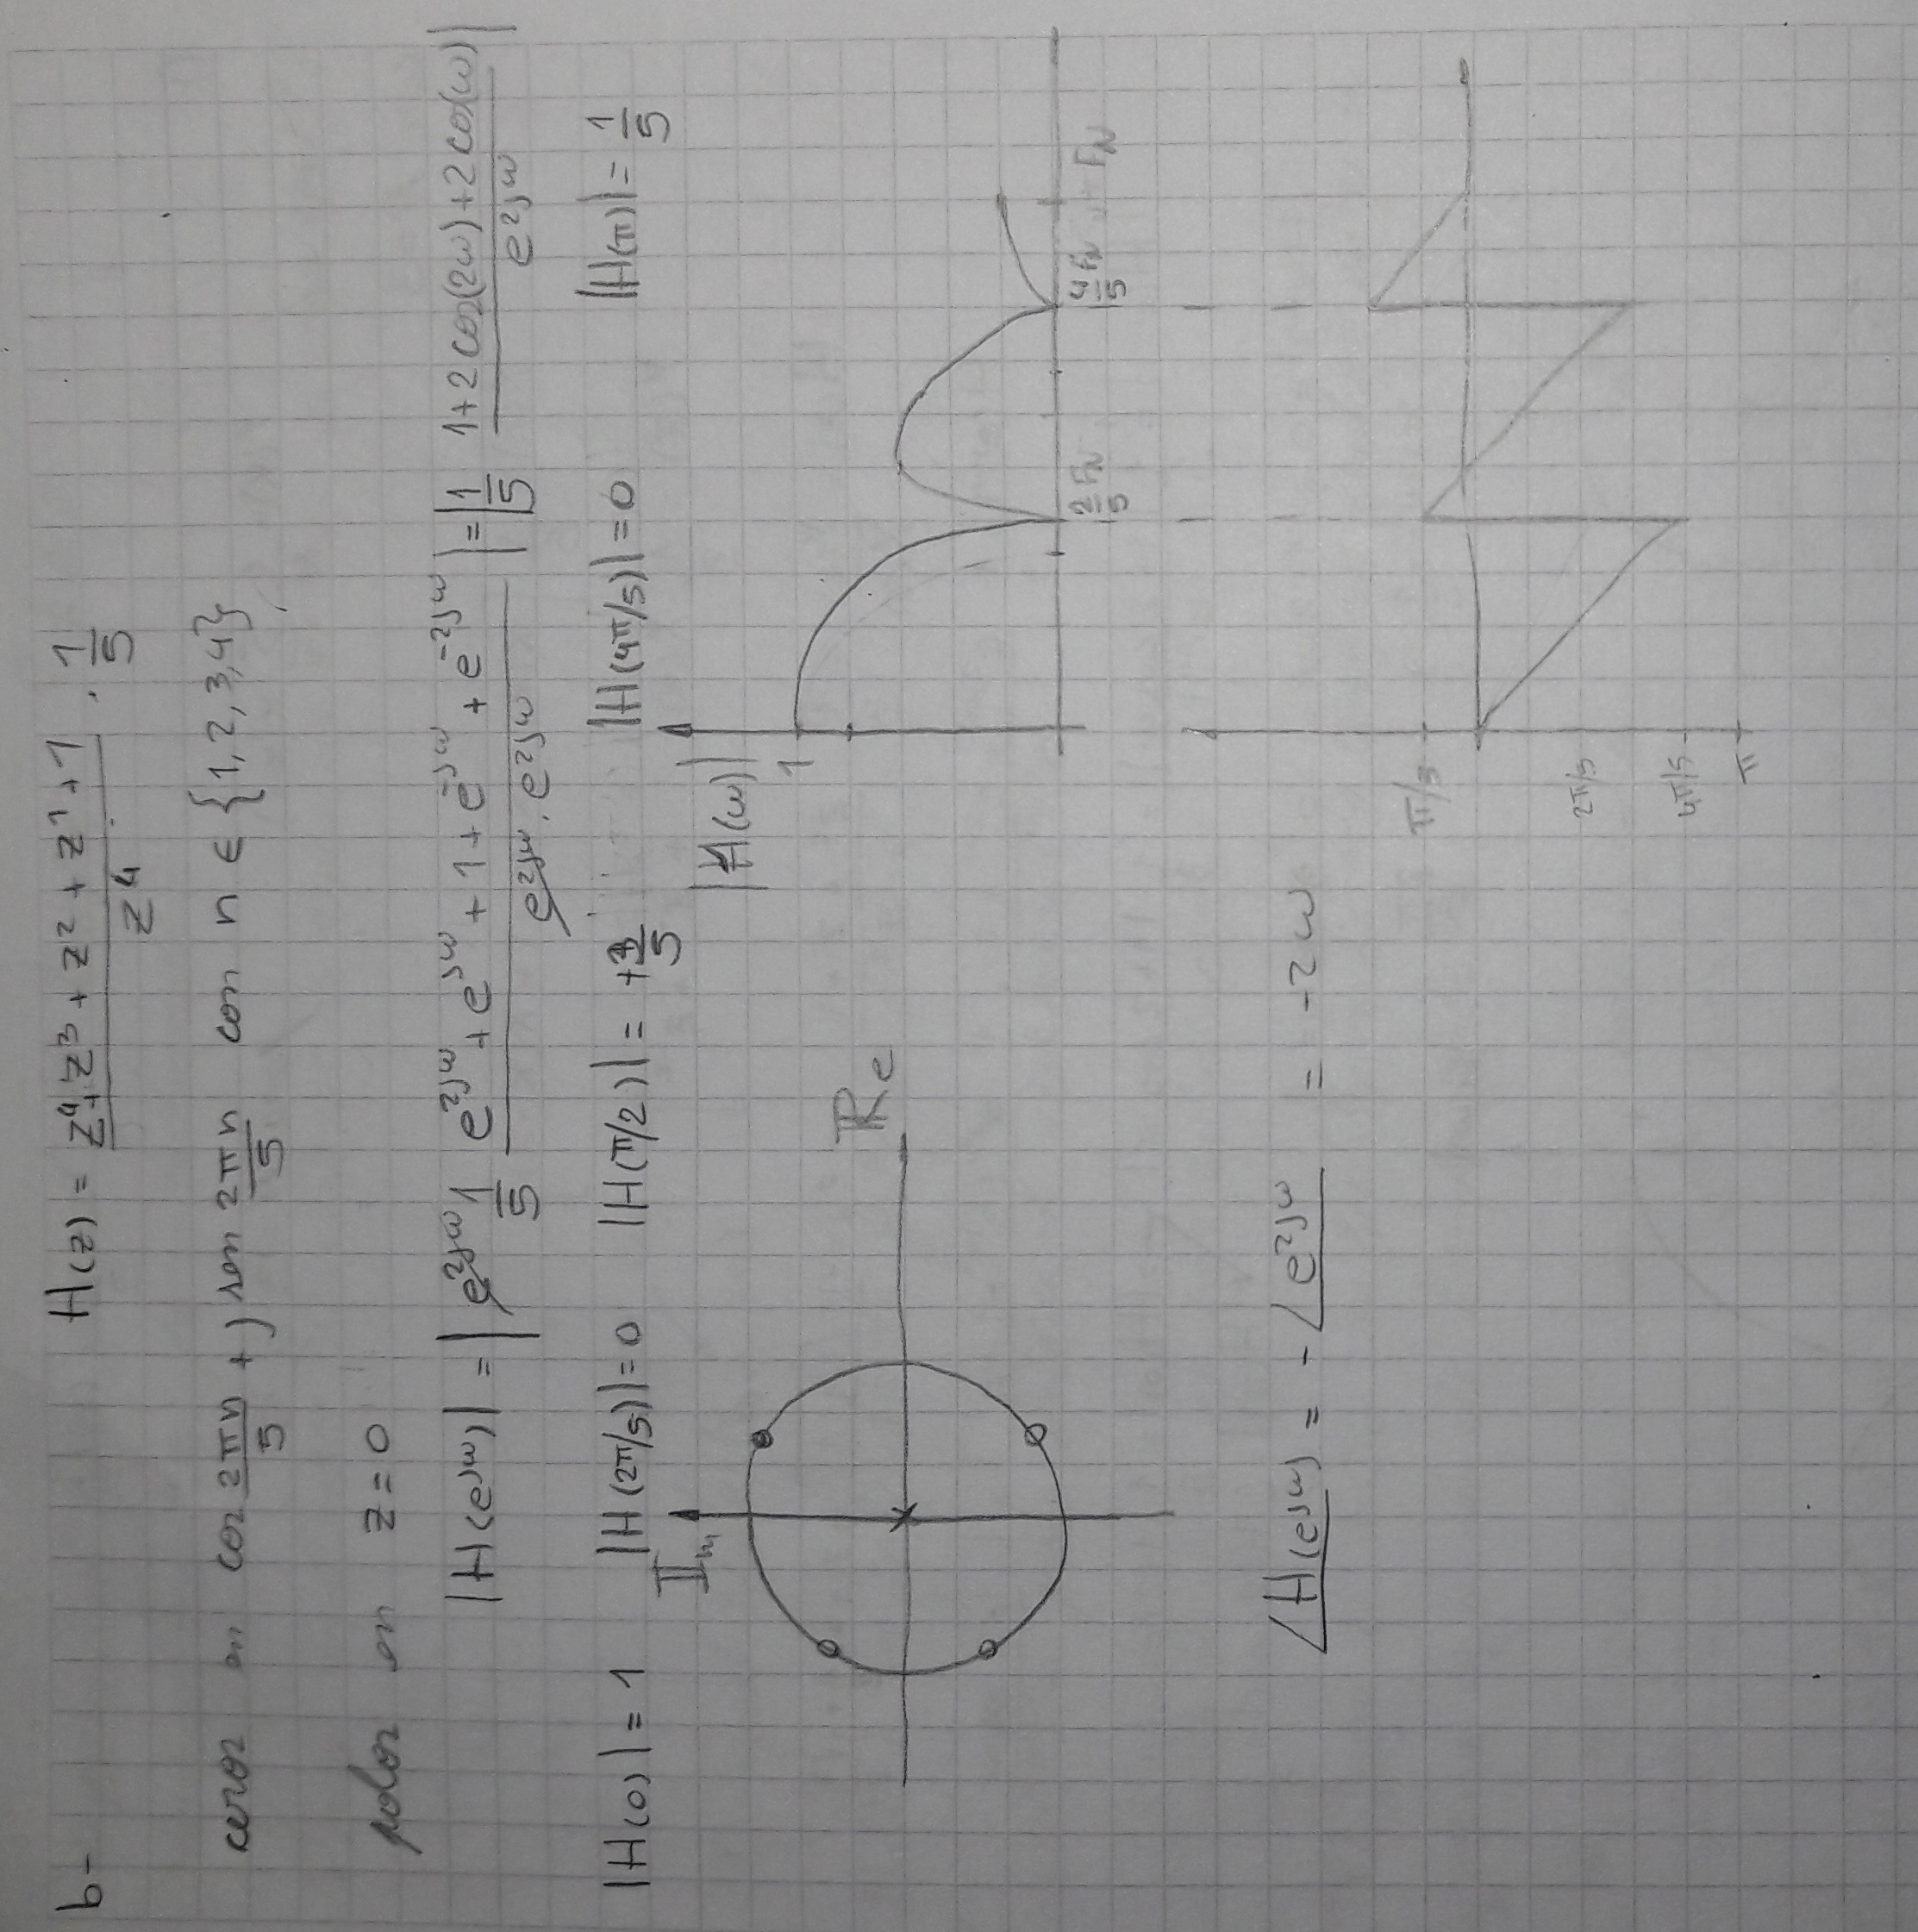 b- H(z) = (z⁴ + z³ + z² + z¹ + 1) / z⁴ · 1/5
ceros en cos 2πn/5 + j sen 2πn/5 con n ∈ {1, 2, 3, 4}
polos en z = 0
|H(e^jω)| = | e^2jω 1/5 (e^2jω + e^jω + 1 + e^-jω + e^-2jω) / (e^2jω · e^2jω) | = | 1/5 (1 + 2 cos(2ω) + 2 cos(ω)) / e^2jω |
|H(0)| = 1 |H(2π/5)| = 0 |H(π/2)| = + /5 |H(4π/5)| = 0 |H(π)| = 1/5
Im
|H(ω)|
1
Re
2/5 FN 4/5 FN FN
∠H(e^jω) = -∠e^2jω = -2ω
π/5
2π/5
4π/5
π